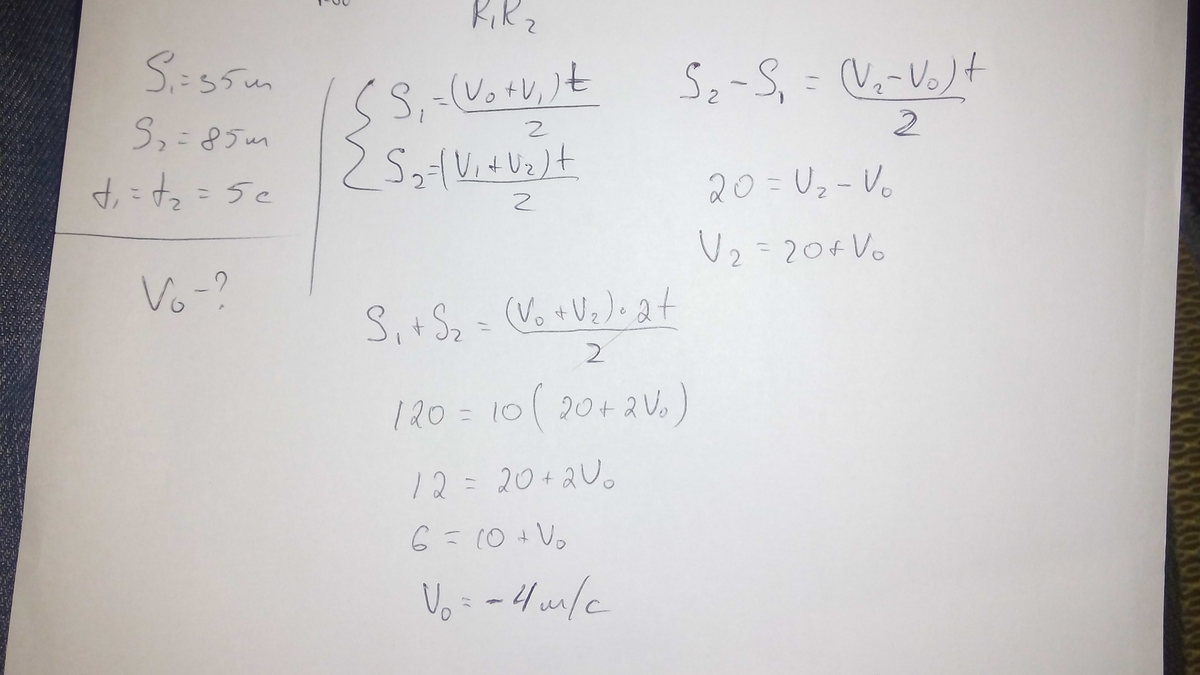 R₁R₂
S₁=35м
S₂=85м
t₁=t₂=5с
V₀-?
S₁=(V₀+V₁)t/2
S₂=(V₁+V₂)t/2
S₂-S₁=(V₂-V₀)t/2
20=V₂-V₀
V₂=20+V₀
S₁+S₂=(V₀+V₂)·2t/2
120=10(20+2V₀)
12=20+2V₀
6=10+V₀
V₀=-4м/с